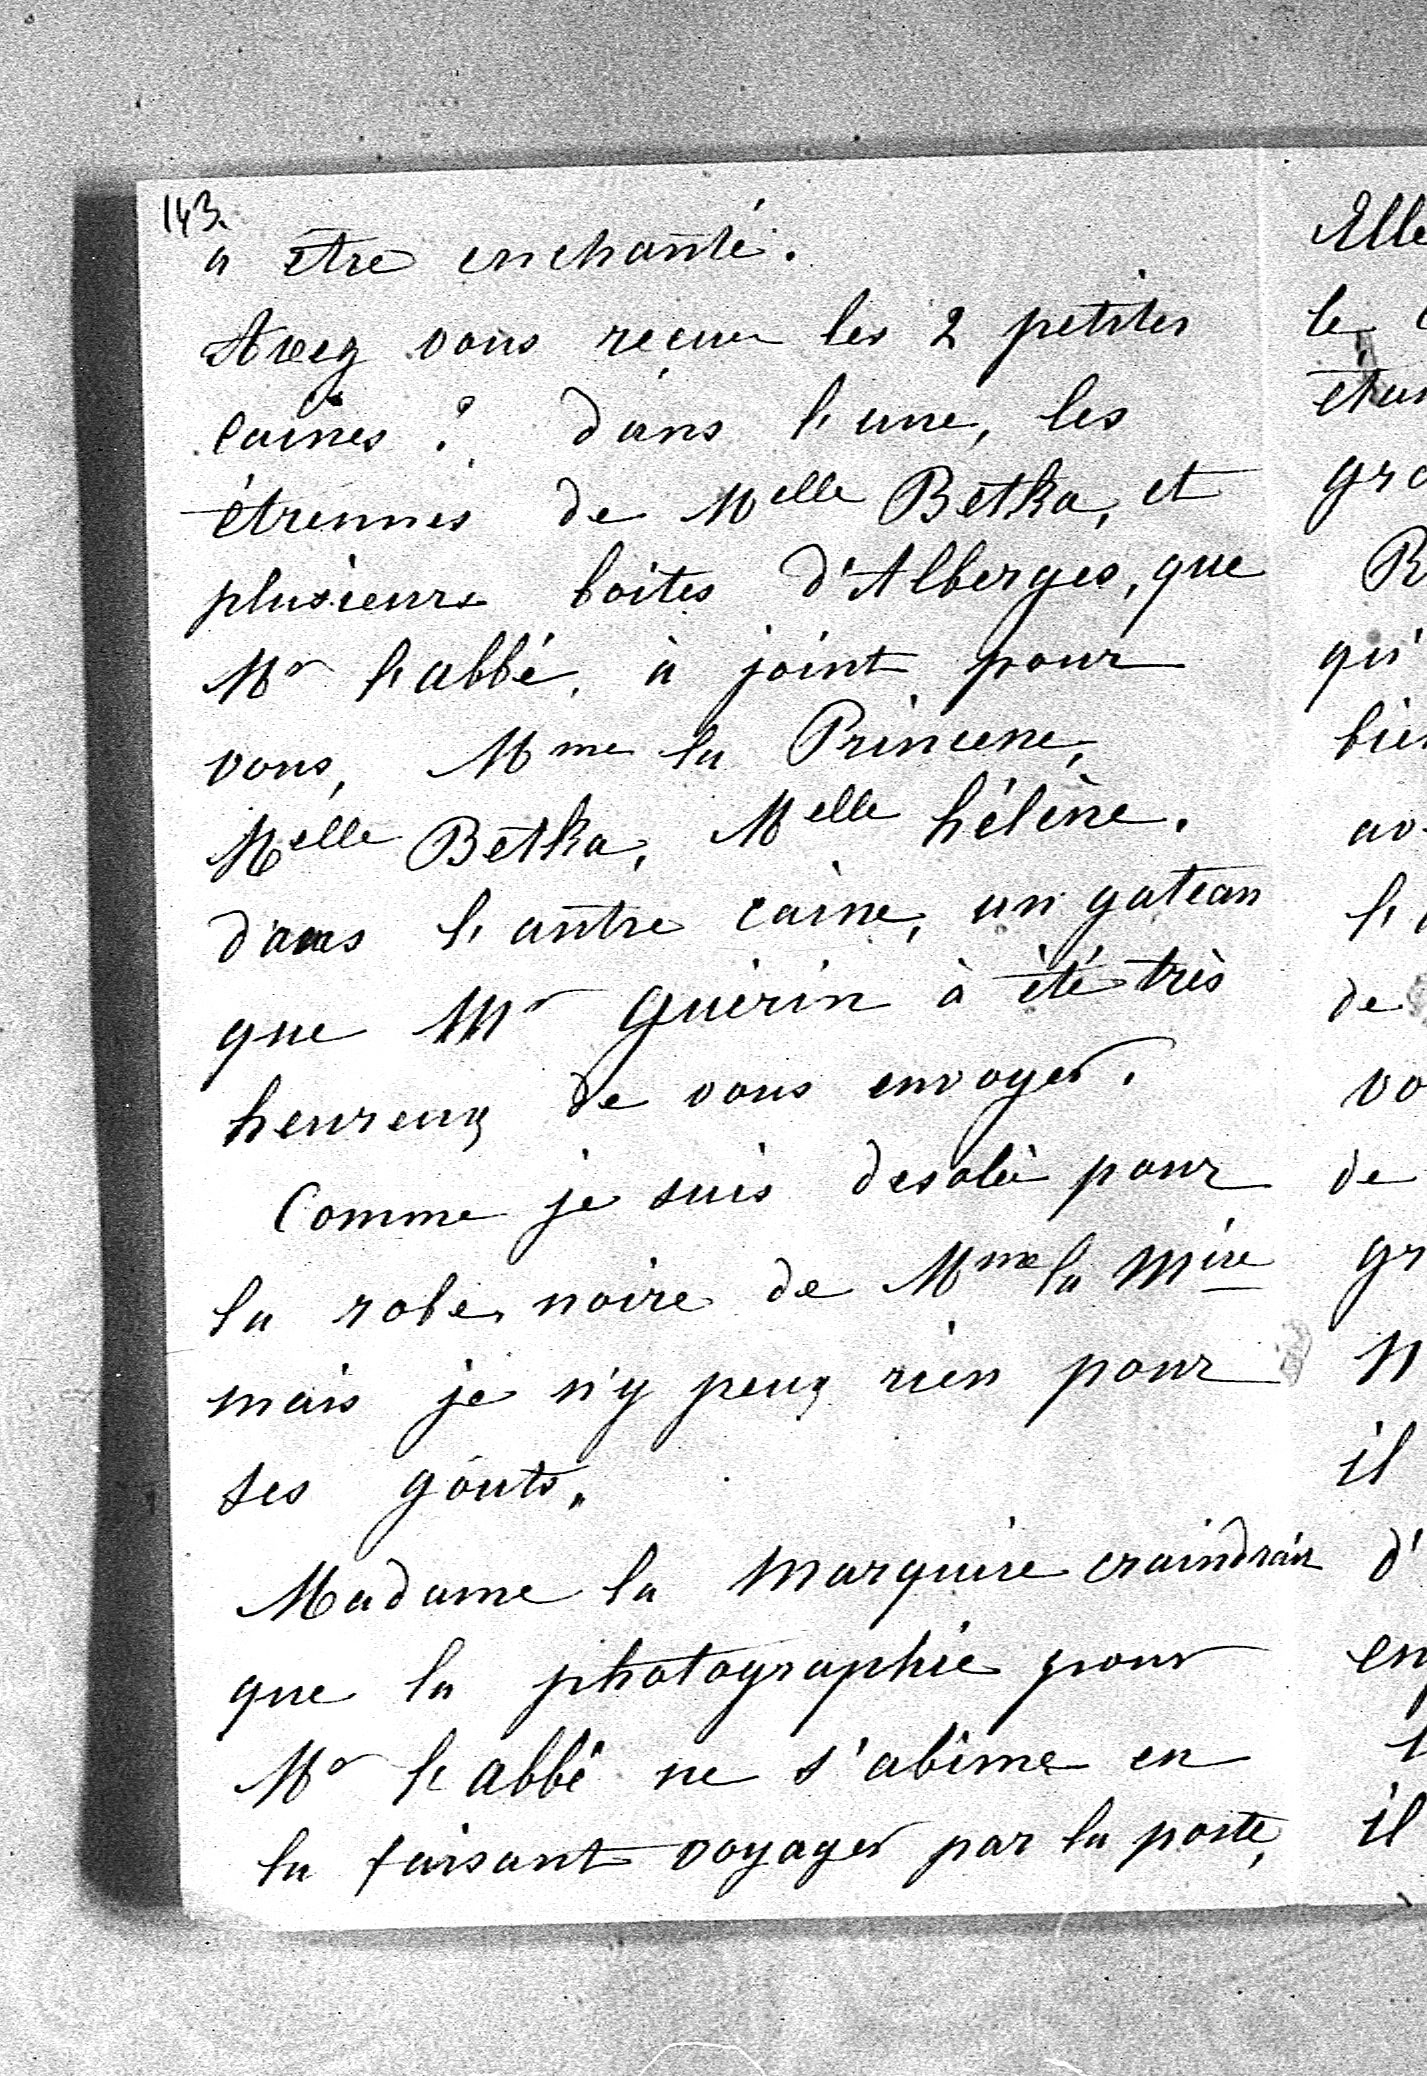 143.
a être enchanté.
Avez vous recues les 2 petites
caisses ? dans l'une, les
étrennes de Melle Betka, et
plusieurs boites d'Alberges, que
Mr l'abbé, à joint pour
vous, Mme la Princesse,
Melle Betka, Melle hélène.
dans l'autre caisse, un gateau
que Mr Guérin à été très
heureux de vous envoyer.
Comme je suis desolé pour
la robe noire de Mme la Mise
mais je n'y peux rien pour
ses goûts.
Madame la Marquise craindrait
que la photographie pour
Mr l'abbé ne s'abîme en
la faisant voyager par la poste,
Elle
le
gr
qu'
de
vo
de
gr
il
d'
il